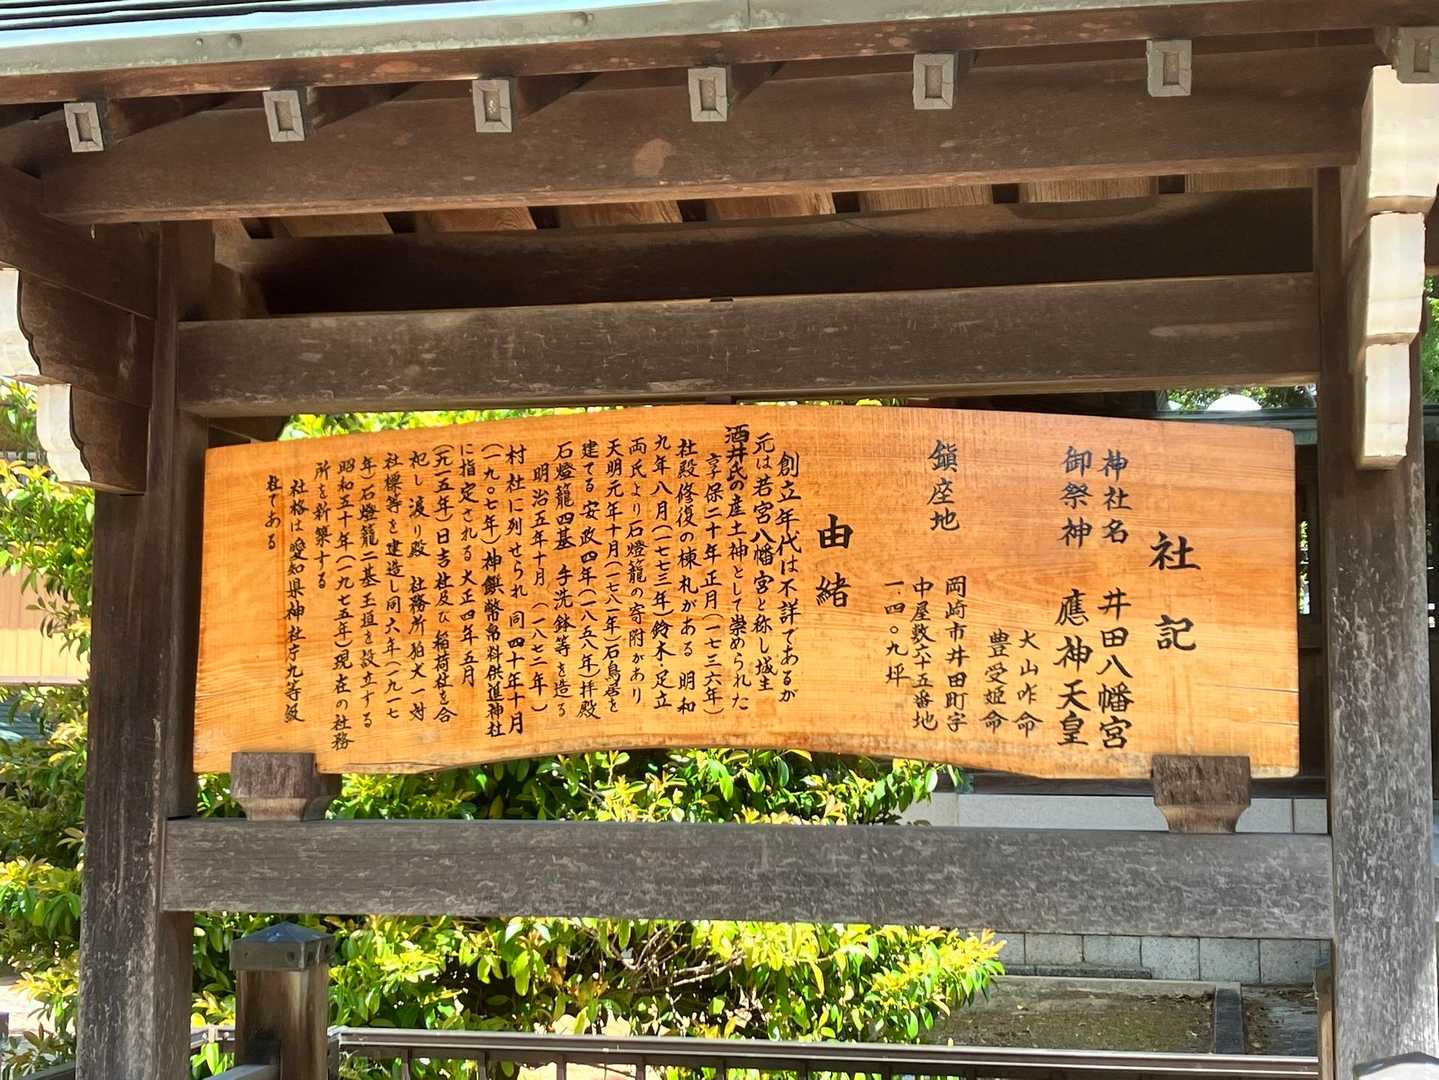 社記
神社名 井田八幡宮
御祭神 應神天皇
大山咋命
豊受姫命
鎮座地 岡崎市井田町字
中屋敷六十五番地
一、四〇九坪
由緒
創立年代は不詳であるが
元は若宮八幡宮と称し城主
酒井氏の産土神として崇められた
享保二十年正月(一七三六年)
社殿修復の棟札がある 明和
九年八月(一七七三年)鈴木・足立
両氏より石燈籠の寄附があり
天明元年十月(一七八一年)石鳥居を
建てる 安政四年(一八五八年)拝殿
石燈籠四基 手洗鉢等を造る
明治五年十月(一八七二年)
村社に列せられ 同四十年十月
(一九〇七年)神饌幣帛料供進神社
に指定される 大正四年五月
(一九一五年)日吉社及び稲荷社を合
祀し 渡り殿 社務所 狛犬一対
社標等を建造し同六年(一九一七
年)石燈籠二基 玉垣を設立する
昭和五十年(一九七五年)現在の社務
所を新築する
社格は愛知県神社庁九等級
社である